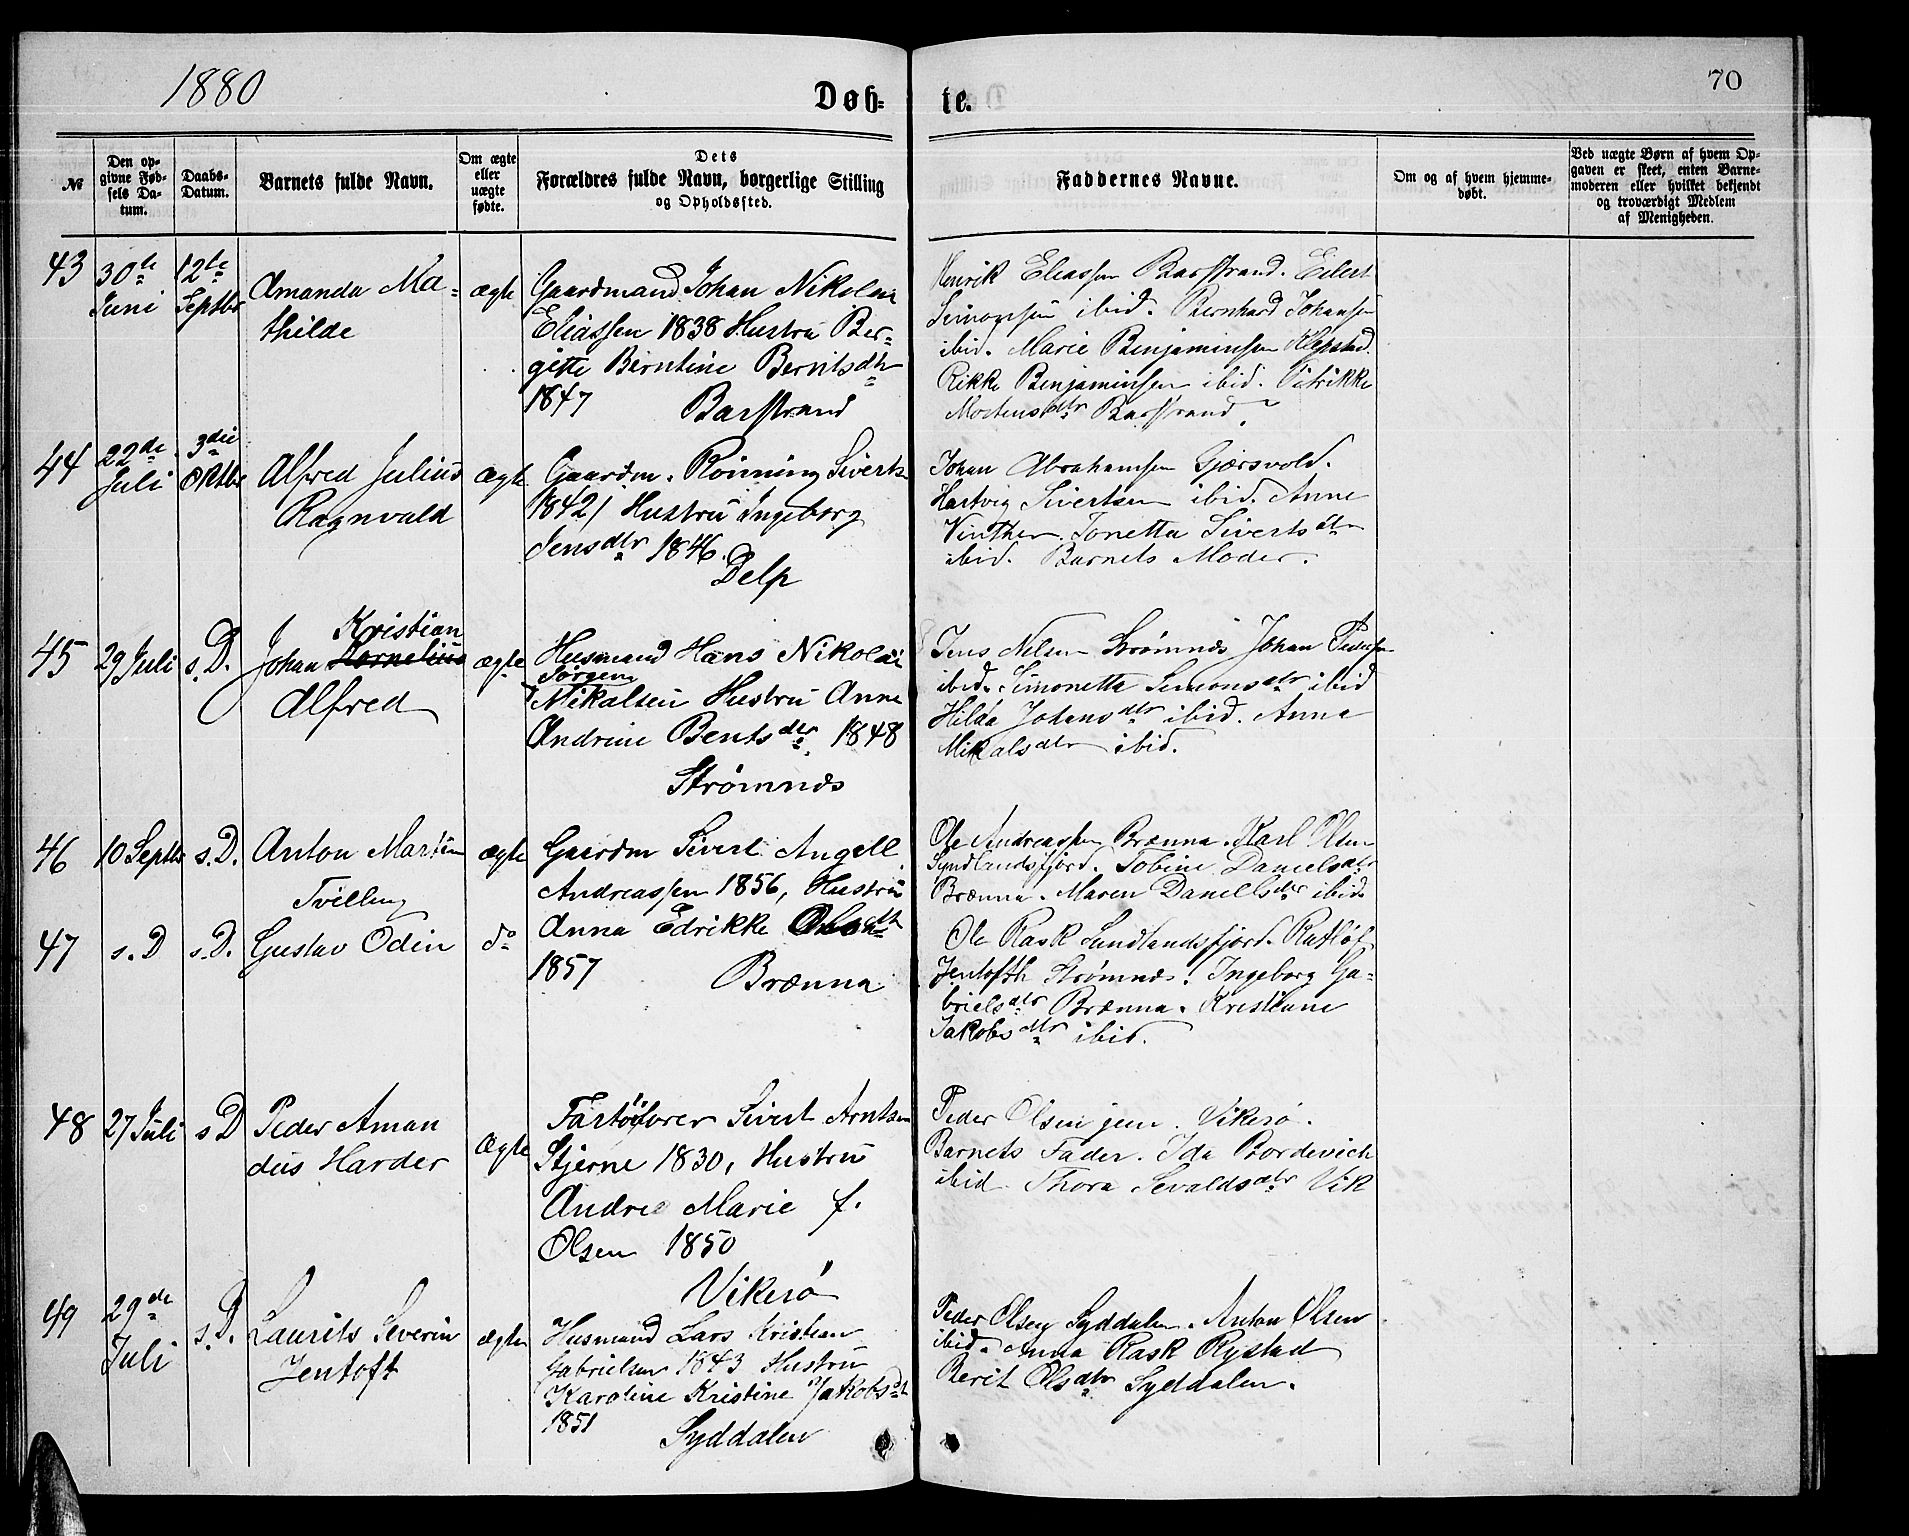 1880
Døb- te.
70
№
Den op-
givne Fød-
sels Da-
tum.
Daabs-
Datum.
Barnets fulde Navn.
Om ægte
eller
uægte
fødte.
Dets
Forældres fulde Navn, borgerlige Stilling
og Opholdssted.
Faddernes Navne.
Om og af hvem hjemme-
døbt.
Ved uægte Børn af hvem Op-
gaven er skeet, enten Barne-
moderen eller hvilket bekjendt
og troværdigt Medlem
af Menigheden.
43
30te
Juni
12te
Septbr
Amanda Ma-
thilde
ægte
Gaardmand Johan Nikolai
Eliassen 1838 Hustru Ber-
gitte Berntine Berntsdtr
1847 Barstrand
Henrik Eliassen Barstrand. Eilert
Simonsen ibid. Bernhard Johansen
ibid. Marie Benjaminsen Klepstad.
Rikke Benjaminsen ibid. Petrikke
Mortensdtr Barstrand
44
22de
Juli
3die
Oktbr
Alfred Julius
Ragnvald
ægte
Gaardm. Rønning Sivertsen
1842 Hustru Ingeborg
Jensdtr 1846.
Delp
Johan Abrahamsen Gjersvold.
Hartvig Sivertsen ibid. Anne
Vinther. Tonetta Sivertsdtr
ibid. Barnets Moder.
45
29 Juli
s.D.
Kristian
Johan Kornelius
Alfred
ægte
Husmand Hans Nikolai
Jørgen
Mikalsen Hustru Anne
Andrine Bentsdtr. 1848
Strømnæs
Jens Nelsen Strømnæs Johan Pedersen
ibid. Simonetta Simonsdtr ibid
Hilda Johansdtr ibid. Anna
Mikalsdtr ibid.
46
10 Septbr
s.D.
Anton Martin
Tvilling
ægte
Gaardm Sivert Angell
Andreassen 1856, Hustru
Anna Edrikke
1857 Brænna
Ole Andreassen Brænna. Karl Olsen
Sundlandsfjord. Tobine Danielsdtr
Brænna. Maren Danielsdtr ibid.
47
s.D
s.D.
Gustav Odin
do
Ole Rask Sundlandsfjord.
Jentofth Strømnæs. Ingeborg Ga-
brielsdtr Brænna. Kristiane
Jakobsdtr ibid.
48
27 Juli
s D
Peder Aman
dus Harder
Ægte
Fartøifører Sivert Arntsen
Stjerne 1830, Hustru
Andrea Marie f.
Olsen 1850
Vikerø
Peder Olsen jun. Vikerø.
Barnets Fader. Ida Bordevich
ibid Thora Sevaldsdtr Vik
49
29de
Juli
s.D.
Laurits Severin
Jentoft
ægte
Husmand Lars Kristian
Gabrielsen 1843 Hustru
Karoline Kristine Jakobsdt
1851
Syddalen
Peder Olsen Syddalen. Anton Olsen
ibid. Anna Rask Rystad
Berit Olsdtr Syddalen.